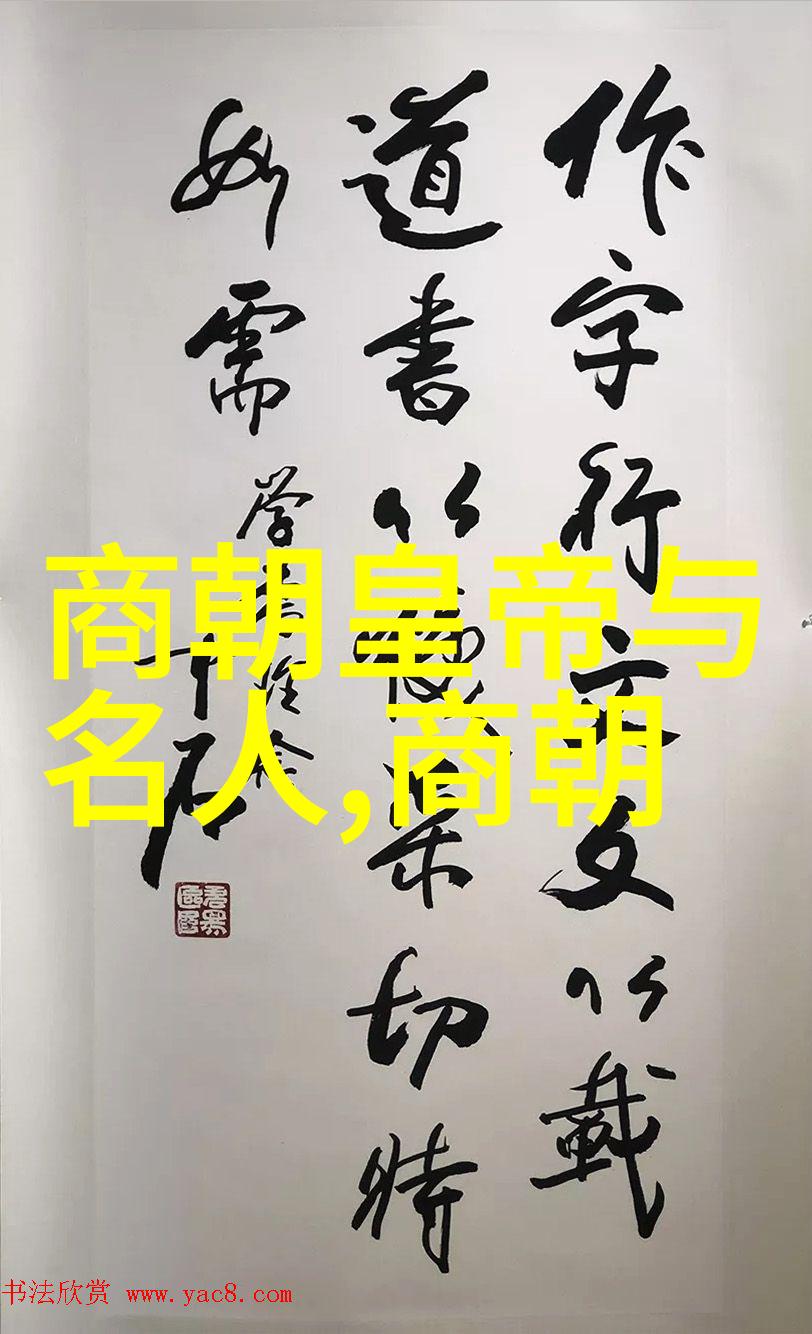 作字行文文以載
道書以焕采切時
如需
商朝皇帝与
名人,商朝
书法欣赏 www.yac8.com